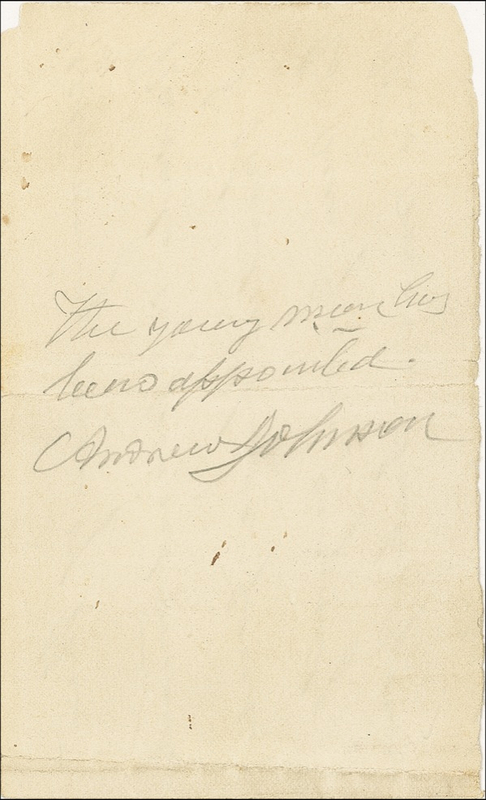 The young man has
been appointed.
Andrew Johnson